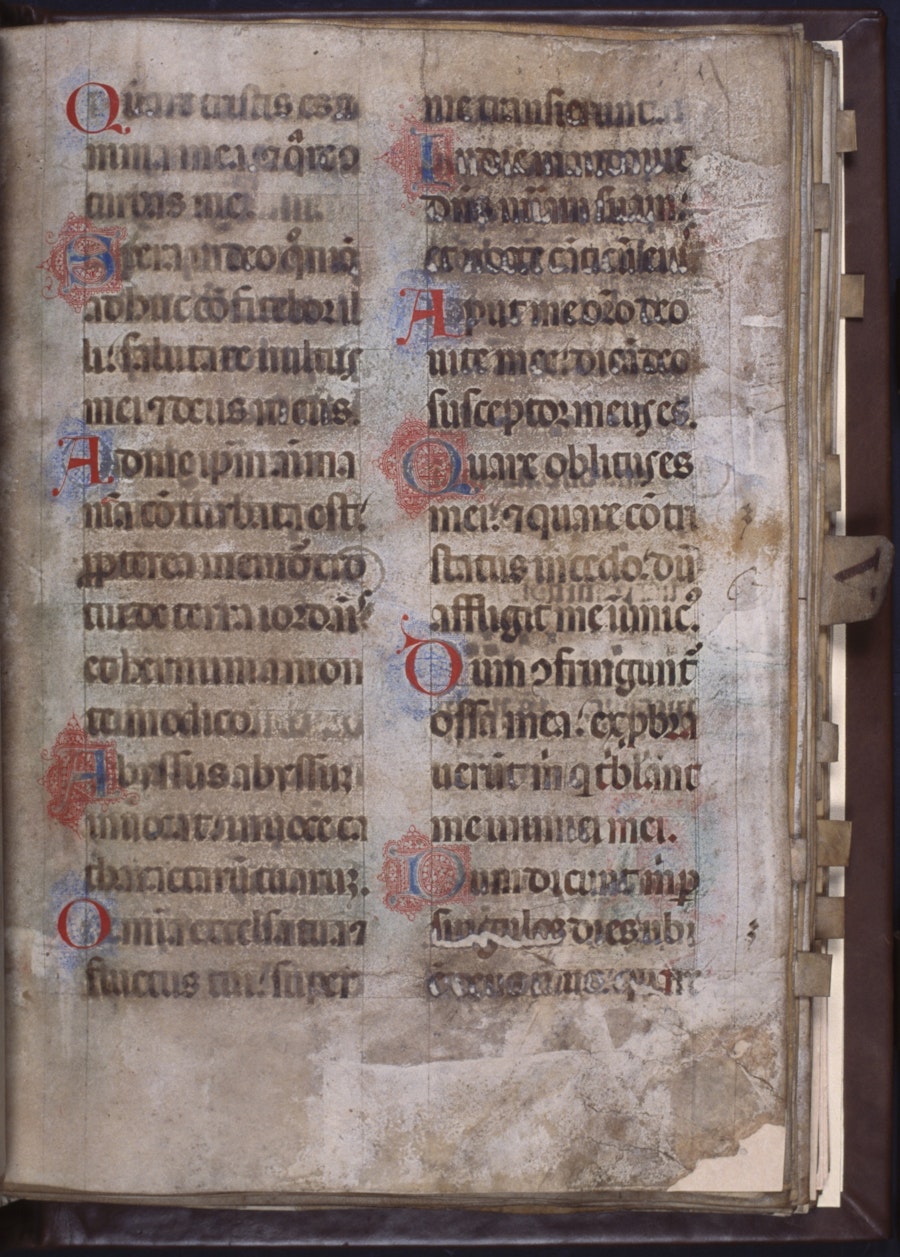 Quare tristis es a
nima mea ⁊ q̃re ɔ
turbas me.
Spera in deo q̃niã
adhuc cõfitebor il
li: salutare vultus
mei ⁊ deus meus.
Ad me ip̃m aĩma
mẽa cõturbata est:
ꝓpterea memor ero
tui de terra iordãĩs
et hermonii a mon
te modico.
Abyssus abyssuꝫ
inuocat: in uoce ca
tharactarũ tuaruꝫ.
Omĩa excelsa tua ⁊
fluctus tui: super
me transierunt.
In die mandauit
dñs mĩam suam:
et nocte cãticũ eius
Aput me oro deo
uite mee: dicã deo
susceptor meus es.
Quare oblitus es
mei: ⁊ quare cõtri
status incedo: dũ
affligit me inimic᷒.
Dum ɔfringunt᷑
ossa mea: exꝓbra
uerũt m̃ q tͥblãnt
me inimici mei.
Dum dicunt m̃ p̱
singulos dies ubi
ẽ deus tuus: quare